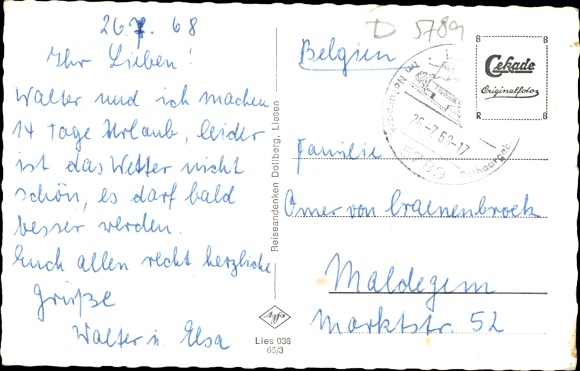 26.7.68
Ihr Lieben!
Walter und ich machen
14 Tage Urlaub, leider
ist das Wetter nicht
schön, es darf bald
besser werden.
Euch allen recht herzliche
Grüße
Walter u. Elsa
Reiseandenken Dollberg, Liesen
Agfa
Lies 036
66/3
D 5789
Belgien
B B
Cekade
Originalfoto
R B
26.-7.68-17
5789
Familie
Omer von Craenenbroek
Maldegem
Marktstr. 52